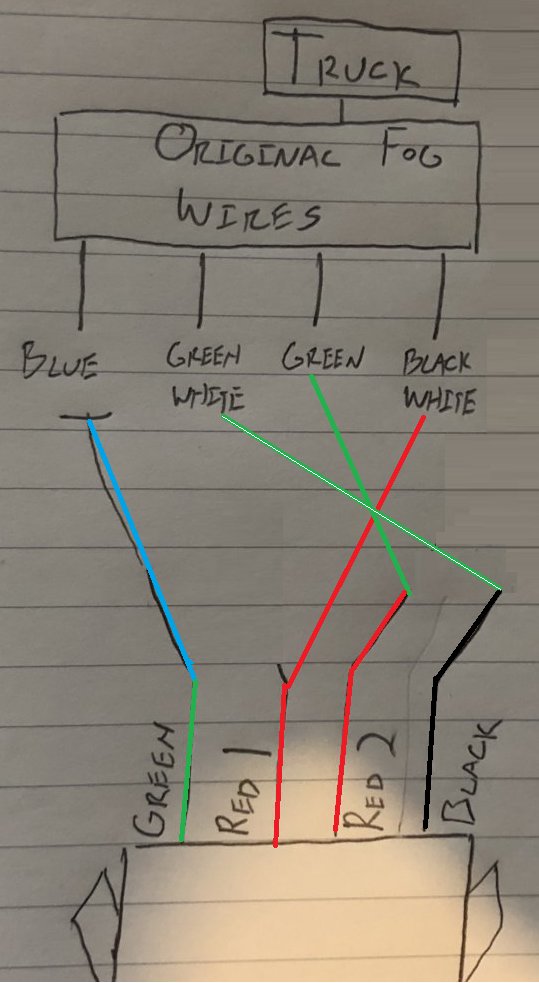 TRUCK
ORIGINAL FOG
WIRES
BLUE
GREEN
WHITE
GREEN
BLACK
WHITE
GREEN
RED 1
RED 2
BLACK